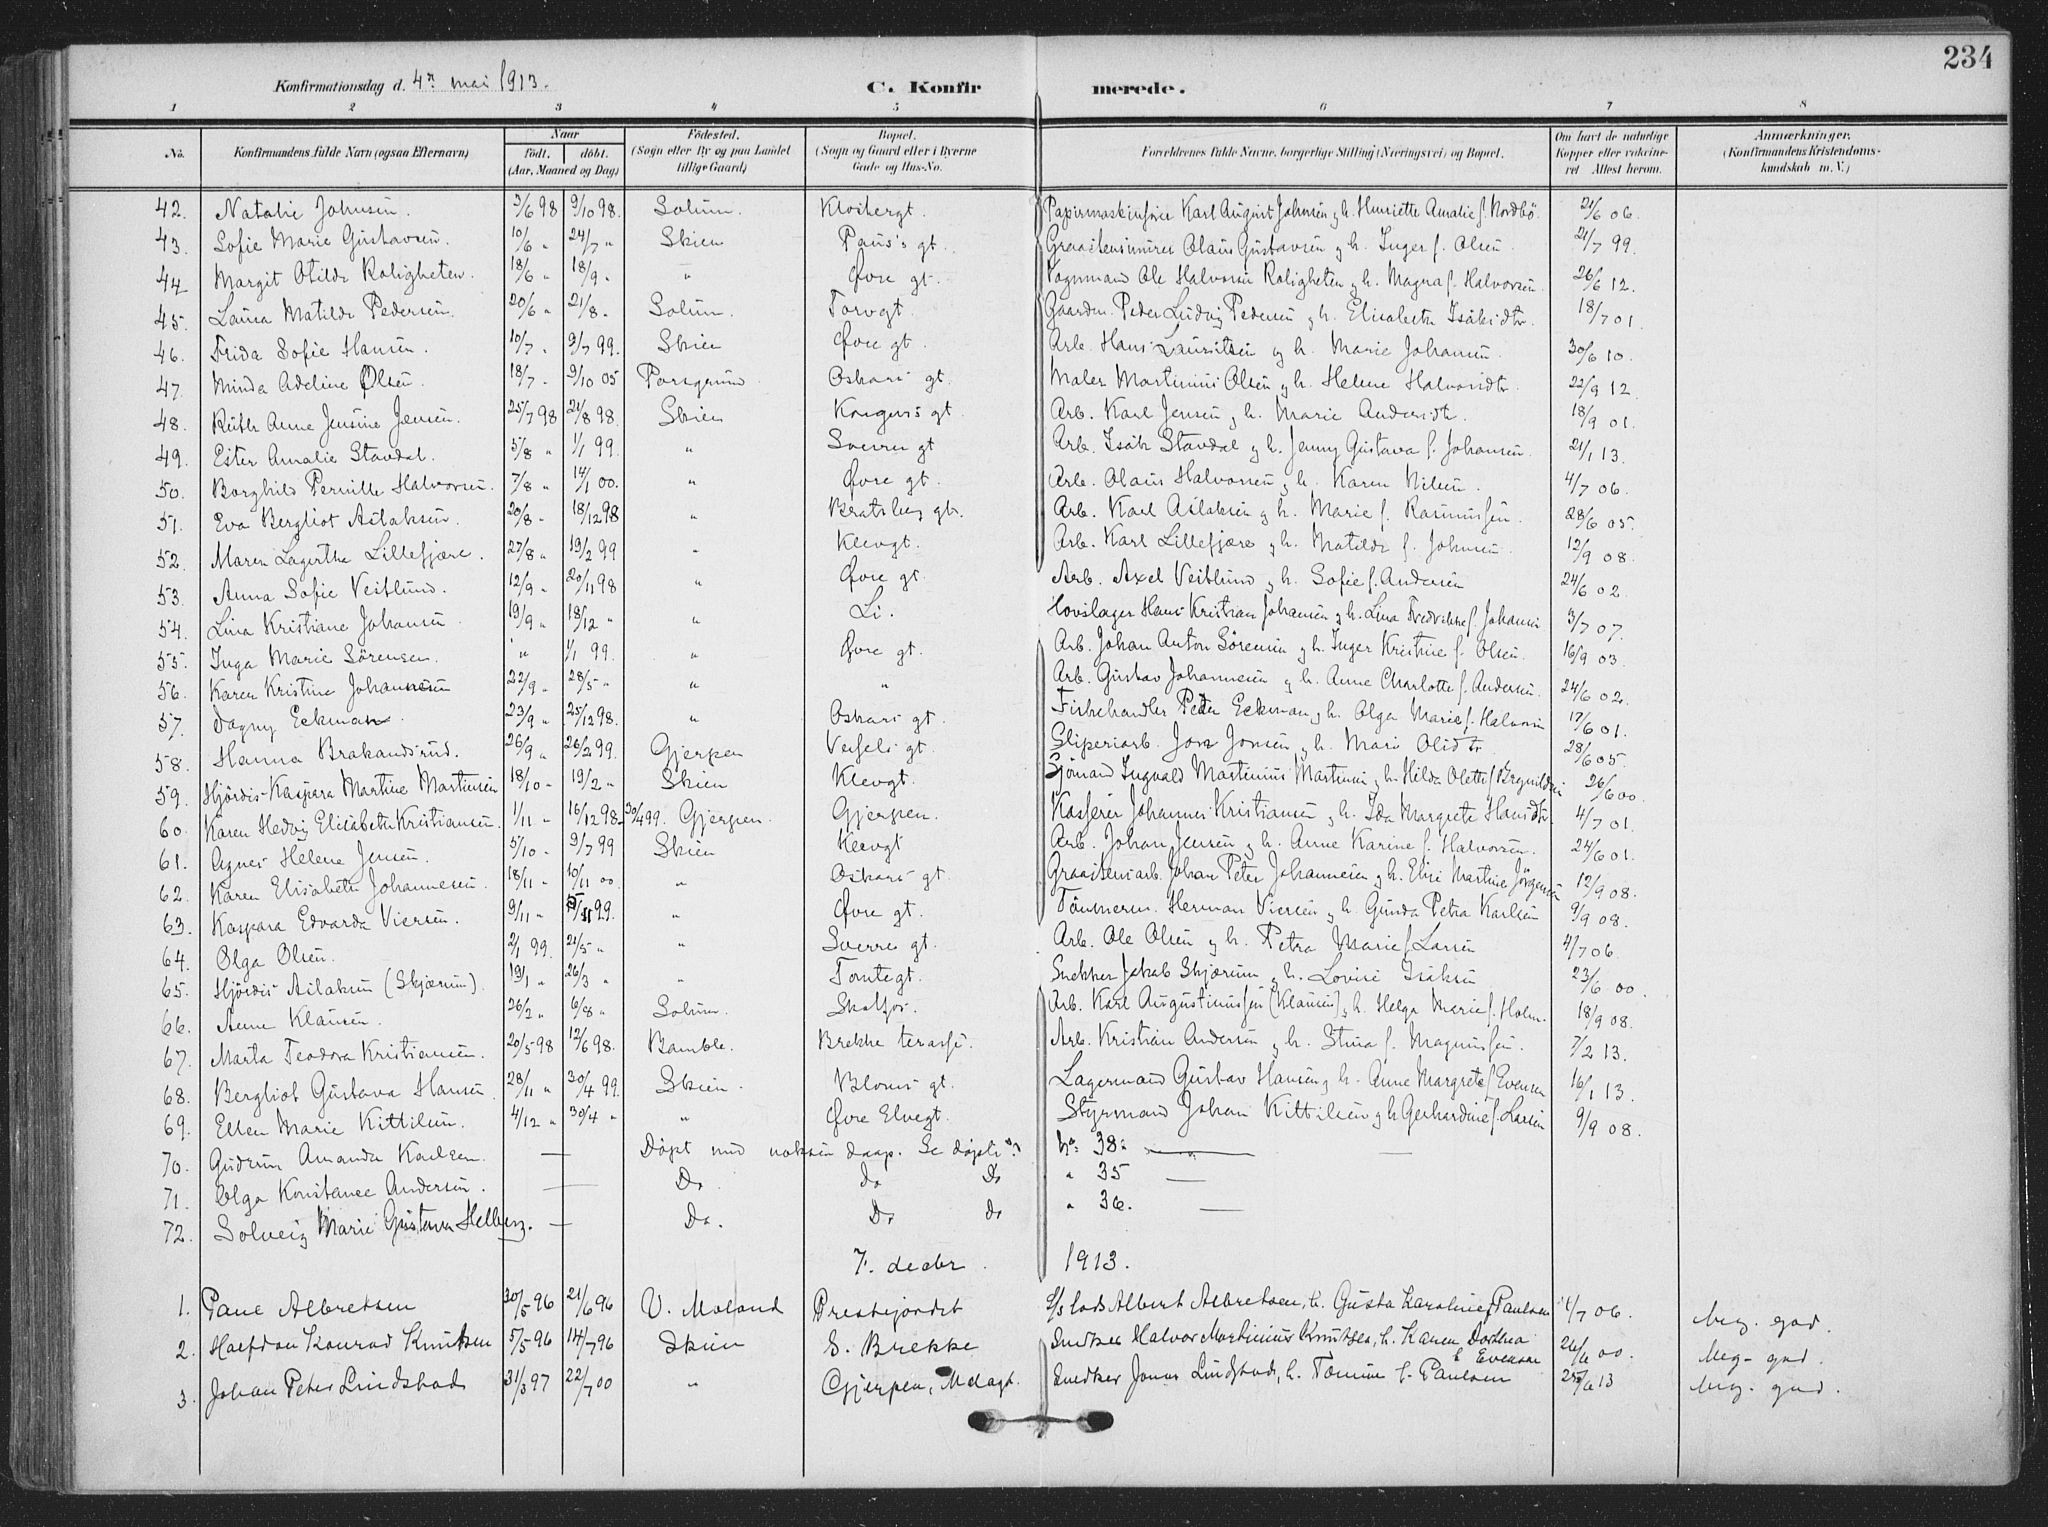 234
Konfirmationsdag d. 4de mai 1913. C. Konfirmerede.
1 2 3 4 5 6 7 8
No. Konfirmandens fulde Navn (ogsaa Efternavn) Naar født. døbt. (Aar, Maaned og Dag) Fødested. (Sogn eller By og paa Landet tillige Gaard) Bopæl. (Sogn og Gaard eller i Byerne Gade og Hus-No. Forældrenes fulde Navne, borgerlige Stilling (Næringsvei) og Bopæl. Om havt de naturlige Kopper eller vakcineret Attest herom. Anmærkninger. (Konfirmandens Kristendomskundskab m. V.)
42. Natalie Johnsen. 3/6 98 9/10 98. Solum. Klostergt. Papirmaskinfører Karl August Johnsen g. h. Henriette Amalie f. Nordbö. 21/6 06.
43. Sofie Marie Gustavsen. 10/6 " 24/7 " Skien Paus's gt. Graastensmurer Olaus Gustavsen g. h. Inger f. Olsen. 21/7 99.
44 Margit Otilde Roligheten. 18/6 " 18/9 " " Øvre gt. Vognmand Ole Halvorsen Roligheten g. h. Magna f. Halvorsen. 26/6 12.
45. Laura Matilde Pedersen. 20/6 " 21/8 " Solum. Torvgt Gaardm. Peder Ludvig Pedersen g. h. Elisabeth Isaksdtr. 18/7 01.
46. Frida Sofie Hansen. 10/7 " 9/7 99. Skien Øvre gt. Arb. Hans Lauritsen g. h. Marie Johansen. 30/6 10.
47. Minda Adeline Olsen. 18/7 " 9/10 05 Porsgrund Oskars gt. Maler Martinius Olsen g. h. Helene Halvorsdtr. 22/9 12.
48. Ruth Anne Jensine Jensen. 25/7 98 21/8 98. Skien Kongens gt. Arb. Karl Jensen g. h. Marie Andersdtr. 18/9 01.
49. Ester Amalie Stavdal. 5/8 " 1/1 99. " Sverres gt Arb. Isak Stavdal g. h. Jenny Gustava f. Johansen. 21/1 13.
50. Borghild Pernille Halvorsen. 7/8 " 14/1 00. " Øvre gt. Arb. Olaus Halvorsen g. h. Karen Nilsen. 4/7 06.
51. Eva Bergliot Aslaksen. 20/8 " 18/12 98 " Bratsberg gt. Arb. Karl Aslaksen g. h. Marie f. Rasmussen. 28/6 05.
52. Maren Lagertha Lillefjære. 27/8 " 19/2 99 " Klevgt. Arb. Karl Lillefjære g. h. Matilde f. Johnsen. 12/9 08.
53. Anna Sofie Vestlund. 12/9 " 20/11 98 " Øvre gt. Arb. Axel Vestlund g. h. Sofie f. Andersen 24/6 02.
54. Lina Kristiane Johansen 19/9 " 18/12 " " Li. Hovslager Hans Kristian Johansen g. h. Lina Fredrikke f. Johansen 3/7 07.
55. Inga Marie Sörensen. " 1/1 99. " Øvre gt. Arb. Johan Anton Sörensen g. h. Inger Kristine f. Olsen. 16/9 03.
56. Karen Kristine Johannesen 22/9 " 28/5 " " " Arb. Gustav Johannesen g. h. Anne Charlotte f. Andersen. 24/6 02.
57. Dagny Eckman. 23/9 " 25/12 98. " Oskars gt. Fiskehandler Peder Eckman g. h. Olga Marie f. Halvorsen 17/6 01.
58. Hanna Brakandsrud. 26/9 " 26/2 99. Gjerpen Vessels gt. Sliperiarb. Jon Jonsen g. h. Mari Olsdtr. 28/6 05.
59. Hjördis Kaspara Martine Martinsen 18/10 " 19/2 " Skien Klevgt. Sjömand Ingvald Martinius Martinsen g. h. Hilda Olette f. Brynildsen 26/6 00.
60. Karen Hedvig Elisabeth Kristiansen. 1/11 " 16/12 98 - 30/4 99. Gjerpen. Gjerpen. Kasserer Johannes Kristiansen g. h. Ida Margrete Hansdtr. 4/7 01.
61. Agnes Helene Jensen. 5/10 " 9/7 99 Skien Klevgt Arb. Johan Jensen g. h. Anne Karine f. Halvorsen. 24/6 01.
62. Karen Elisabeth Johannesen. 18/11 " 10/11 00. " Oskars gt. Graastensarb. Johan Peter Johannesen g. h. Elise Martine Jörgensen 12/9 08.
63. Kaspara Edvarda Viersen. 9/11 " 5/11 99. " Øvre gt. Tömmerm. Herman Viersen g. h. Gunda Petra Karlsen 9/9 08.
64. Olga Olsen. 2/1 99. 21/5 " " Sverres gt. Arb. Ole Olsen g. h. Petra Marie f. Larsen 4/7 06.
65. Hjördis Aslaksen (Skjærum). 19/1 " 26/3 " " Tomtegt. Snekker Jakob Skjærum g. h. Lovise Isaksen 23/6 00.
66. Anne Klausen. 26/2 " 6/8 " Solum. Skotfos. Arb. Karl Augustinussen (Klausen) g. h. Helga Marie f. Holm. 18/9 08.
67. Marta Teodora Kristiansen. 20/5 98 12/6 98. Bamble. Brekke terasse. Arb. Kristian Andersen g. h. Stina f. Magnussen. 7/2 13.
68. Bergliot Gustava Hansen. 28/11 " 30/4 99. Skien. Bloms gt. Lagermand Gustav Hansen g. h. Anne Margrete f. Evensen 16/1 13.
69. Ellen Marie Kittilsen. 4/12 " 30/4 " " Øvre Elvegt. Styrmand Johan Kittilsen g. h. Gerhardine f. Larsen 9/9 08.
70. Gudrun Amanda Karlsen. — Døpt med voksen daap. Se døpte No. 38. —
71. Olga Konstance Andersen. — Do. Do Do " 35 —
72. Solveig Marie Gustava Hellberg. — Do. Do do " 36. —
7. decbr. 1913.
1. Albretsen 30/5 96 21/6 96 V. Moland Prestejordet Lods Albert Albretsen, h. Gusta Karoline f. Paulsen 4/7 06. Meg. god.
2. Halfdan Konrad Knutsen 5/5 96 14/7 96 Skien S. Brekke Snedker Halvor Martinius Knutsen, h. Karen Dorthea f. Evensen 26/6 00. Meg. god.
3. Johan Peter Lindstad 31/3 97 22/7 00 " Gjerpen, Snedker Jonas Lindstad, h. Tomine f. Paulsen 25/6 13 Meg. god.